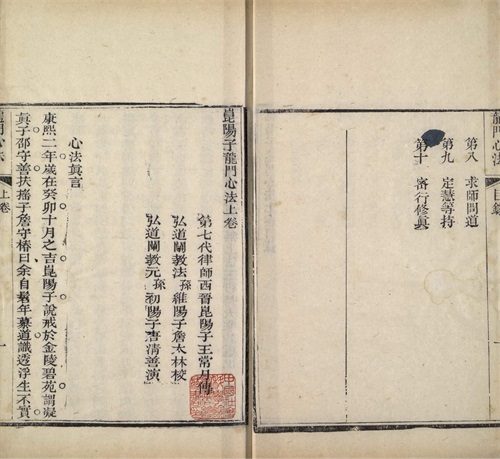 龍門心法
目錄
第八 求師問道
第九 定慧等持
第十 審行修真
崑陽子龍門心法上卷
第七代律師西晉崑陽子王常月傳
弘道闡教法孫維陽子詹太林校
弘道闡教元孫初陽子唐清善演
心法眞言
康熙二年歲在癸卯十月之吉崑陽子說戒於金陵碧苑謂凝
眞子邵守善扶搖子詹守椿曰余自髫年慕道識透浮生不實
上卷